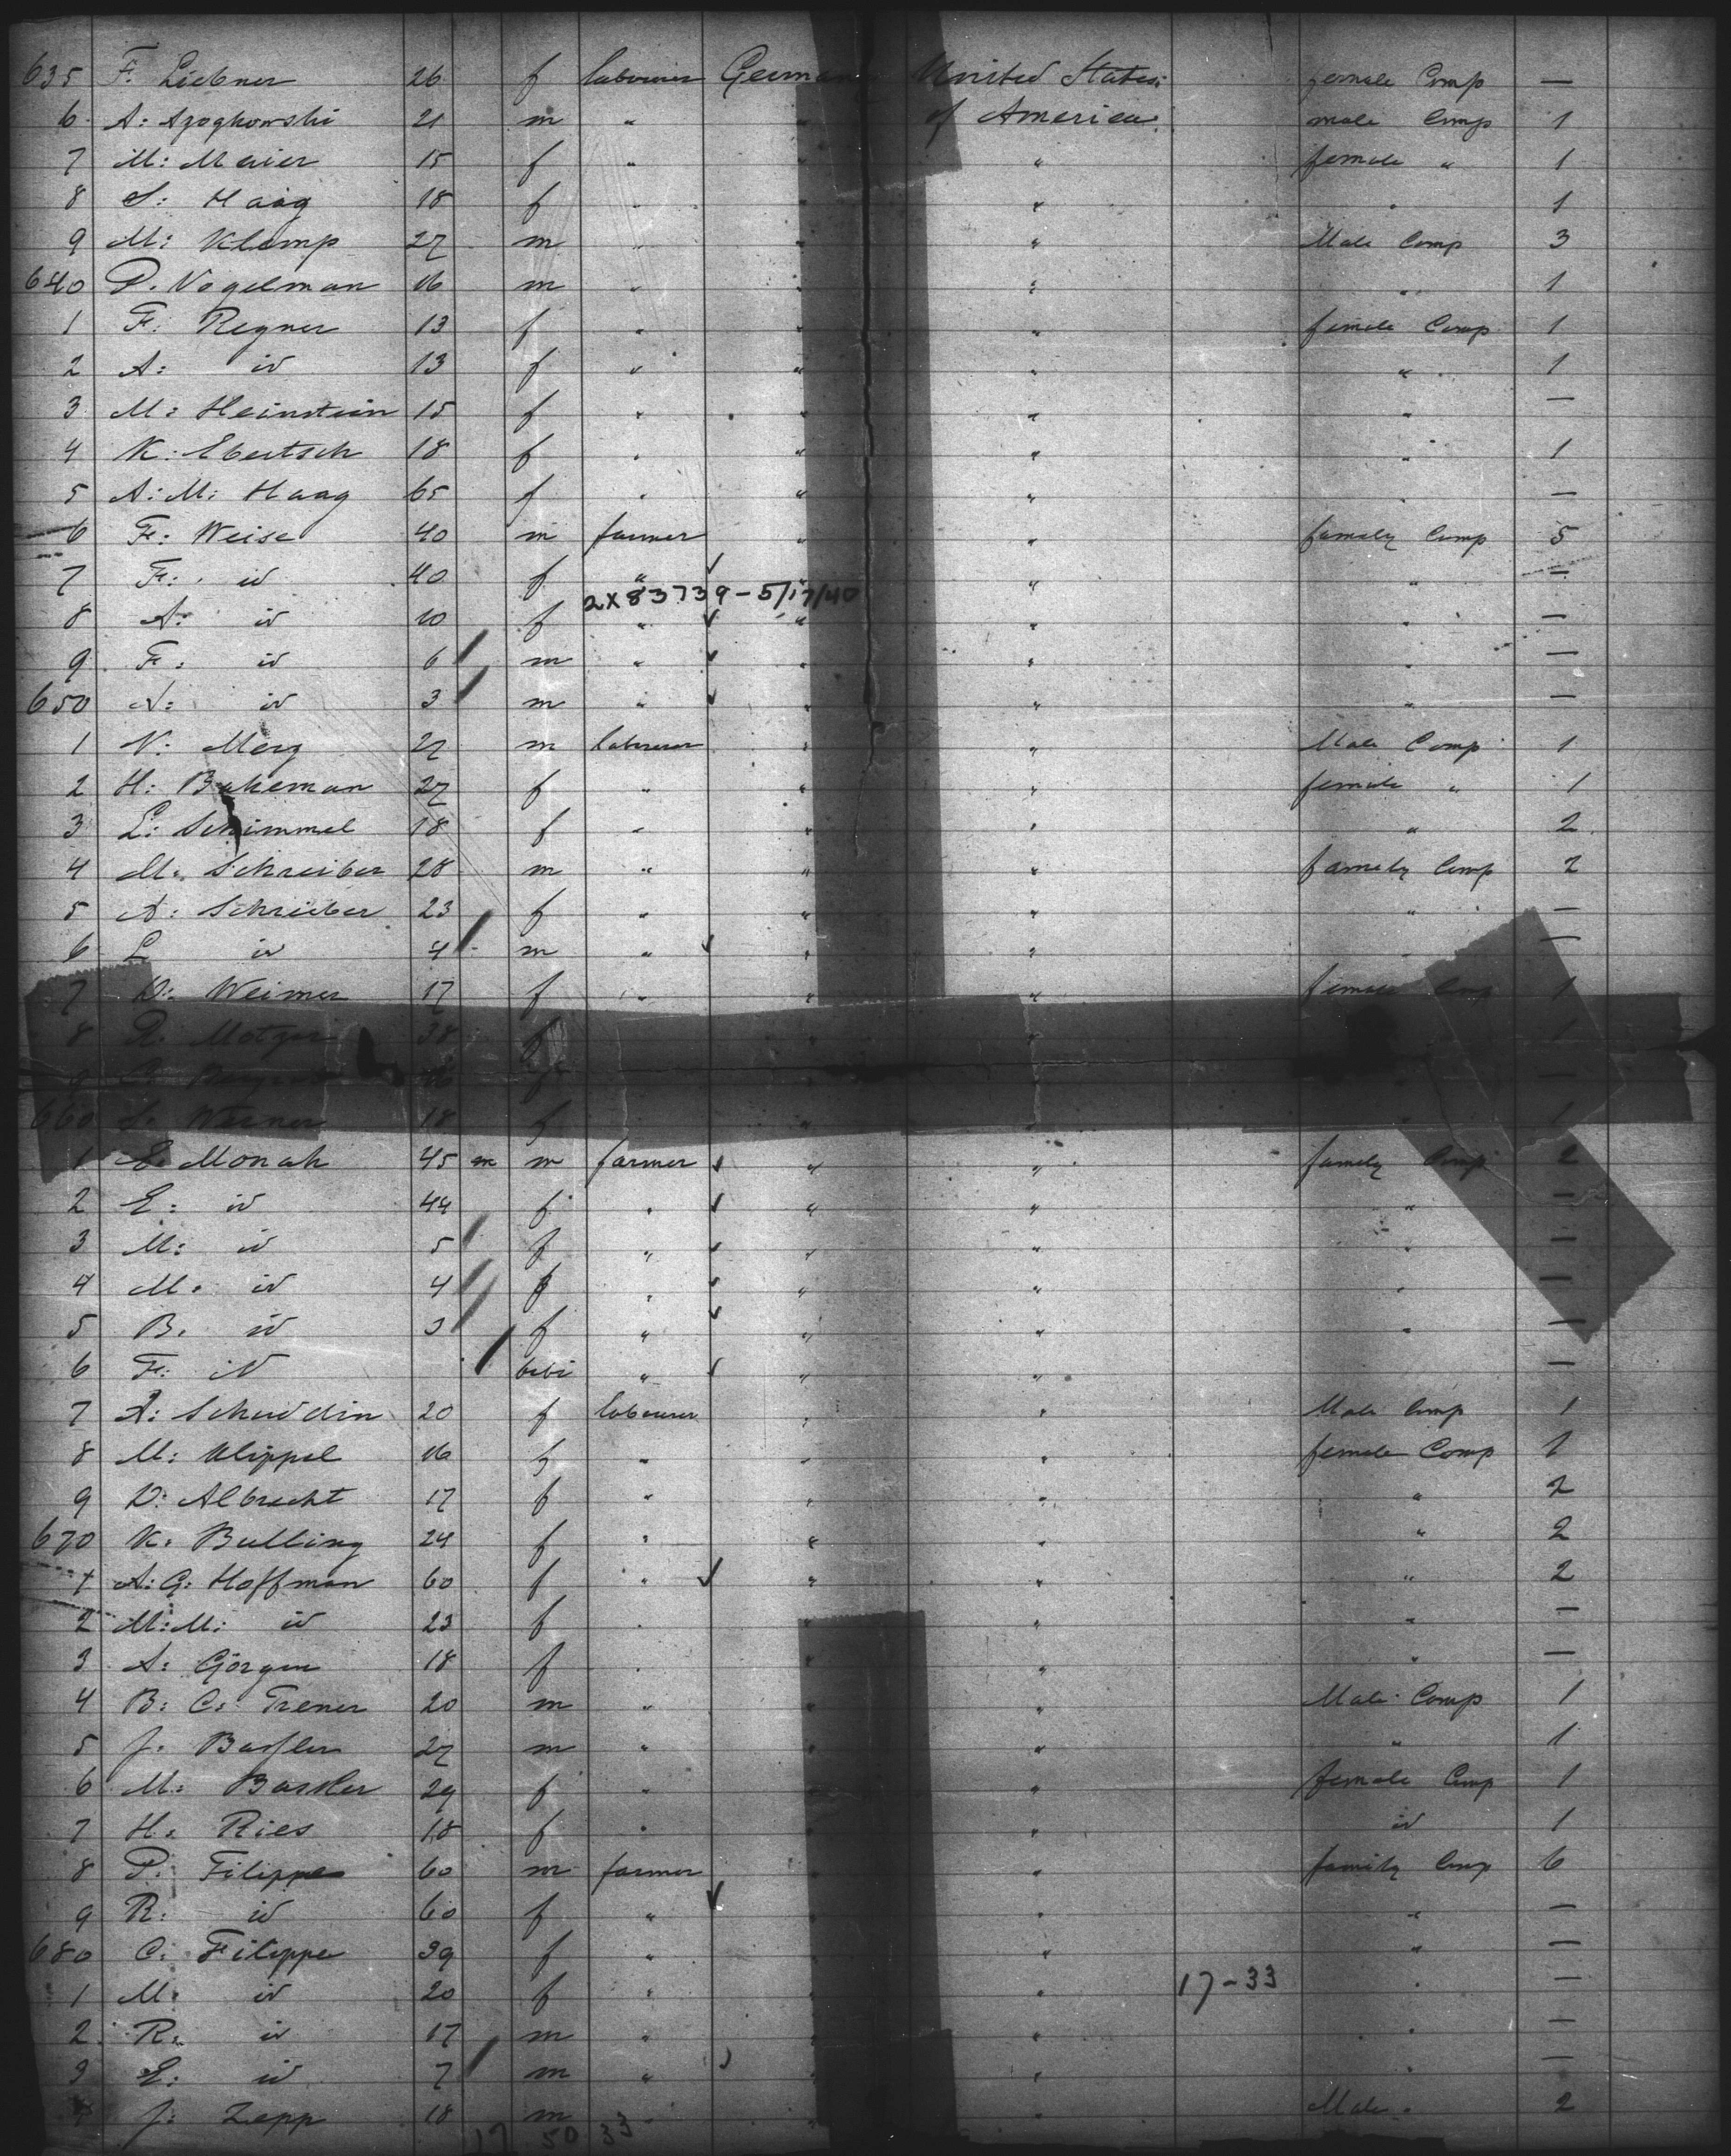 635 F. Liebner 26 f labourer German United States female Comp —
6 A: Azoghowski 21 m " " of America male Comp 1
7 M: Maier 15 f " " " female " 1
8 S: Haag 18 f " " " " 1
9 M: Klemp 27 m " " " Male Comp 3
640 P. Vogelman 16 m " " " " 1
1 F: Regner 13 f " " " female Comp 1
2 A: id 13 f " " " " 1
3 M: Heinstein 15 f " " " " —
4 K: Ebertsch 18 f " " " " 1
5 A: M: Haag 65 f " " " " —
6 F: Weise 40 m farmer " " famely Comp 5
7 F: id 40 f " " " " —
2X83739-5/17/40
8 A: id 10 f " " " " —
9 F: id 6 m " " " " —
650 A: id 3 m " " " " —
1 N: Merg 27 m labourer " " Male Comp 1
2 H: Bakeman 27 f " " " female " 1
3 L: Schimmel 18 f " " " " 2
4 M: Schreiber 28 m " " " famely Comp 2
5 A: Schreiber 23 f " " " " —
6 L id 4 m " " " " —
7 D: Weimer 17 f " " " female Comp 1
8 R. Motger 38 f " 1
660 S. Werner 18 f " " 1
1 E. Monah 45 m m farmer " " famely Comp 2
2 E: id 44 f " " " " —
3 M: id 5 f " " " " —
4 M: id 4 f " " " " —
5 B. id 3 f " " " " —
6 F: id bebi " " " —
7 A: Schuddin 20 f labourer " " Male Comp 1
8 M: Klippel 16 f " " " female Comp 1
9 D: Albrecht 17 f " " " " 2
670 K: Bulling 24 f " " " " 2
1 A: G: Hoffman 60 f " " " " 2
2 M: M: id 23 f " " " —
3 A: Görgen 18 f " " " " —
4 B: C: Trener 20 m " " " Male Comp 1
5 J. Bassler 27 m " " " " 1
6 M: Bassler 29 f " " female Comp 1
7 H. Ries 18 f " " id 1
8 P. Filippe 60 m farmer " famely Comp 6
9 R: id 60 f " " " —
680 C: Filippe 39 f " " " —
1 M: id 20 f " " 17-33 " —
2 R: id 17 m " " " —
3 E: id 7 m " " " —
4 J: Zepp 18 m " " Male " 2
17 50 33